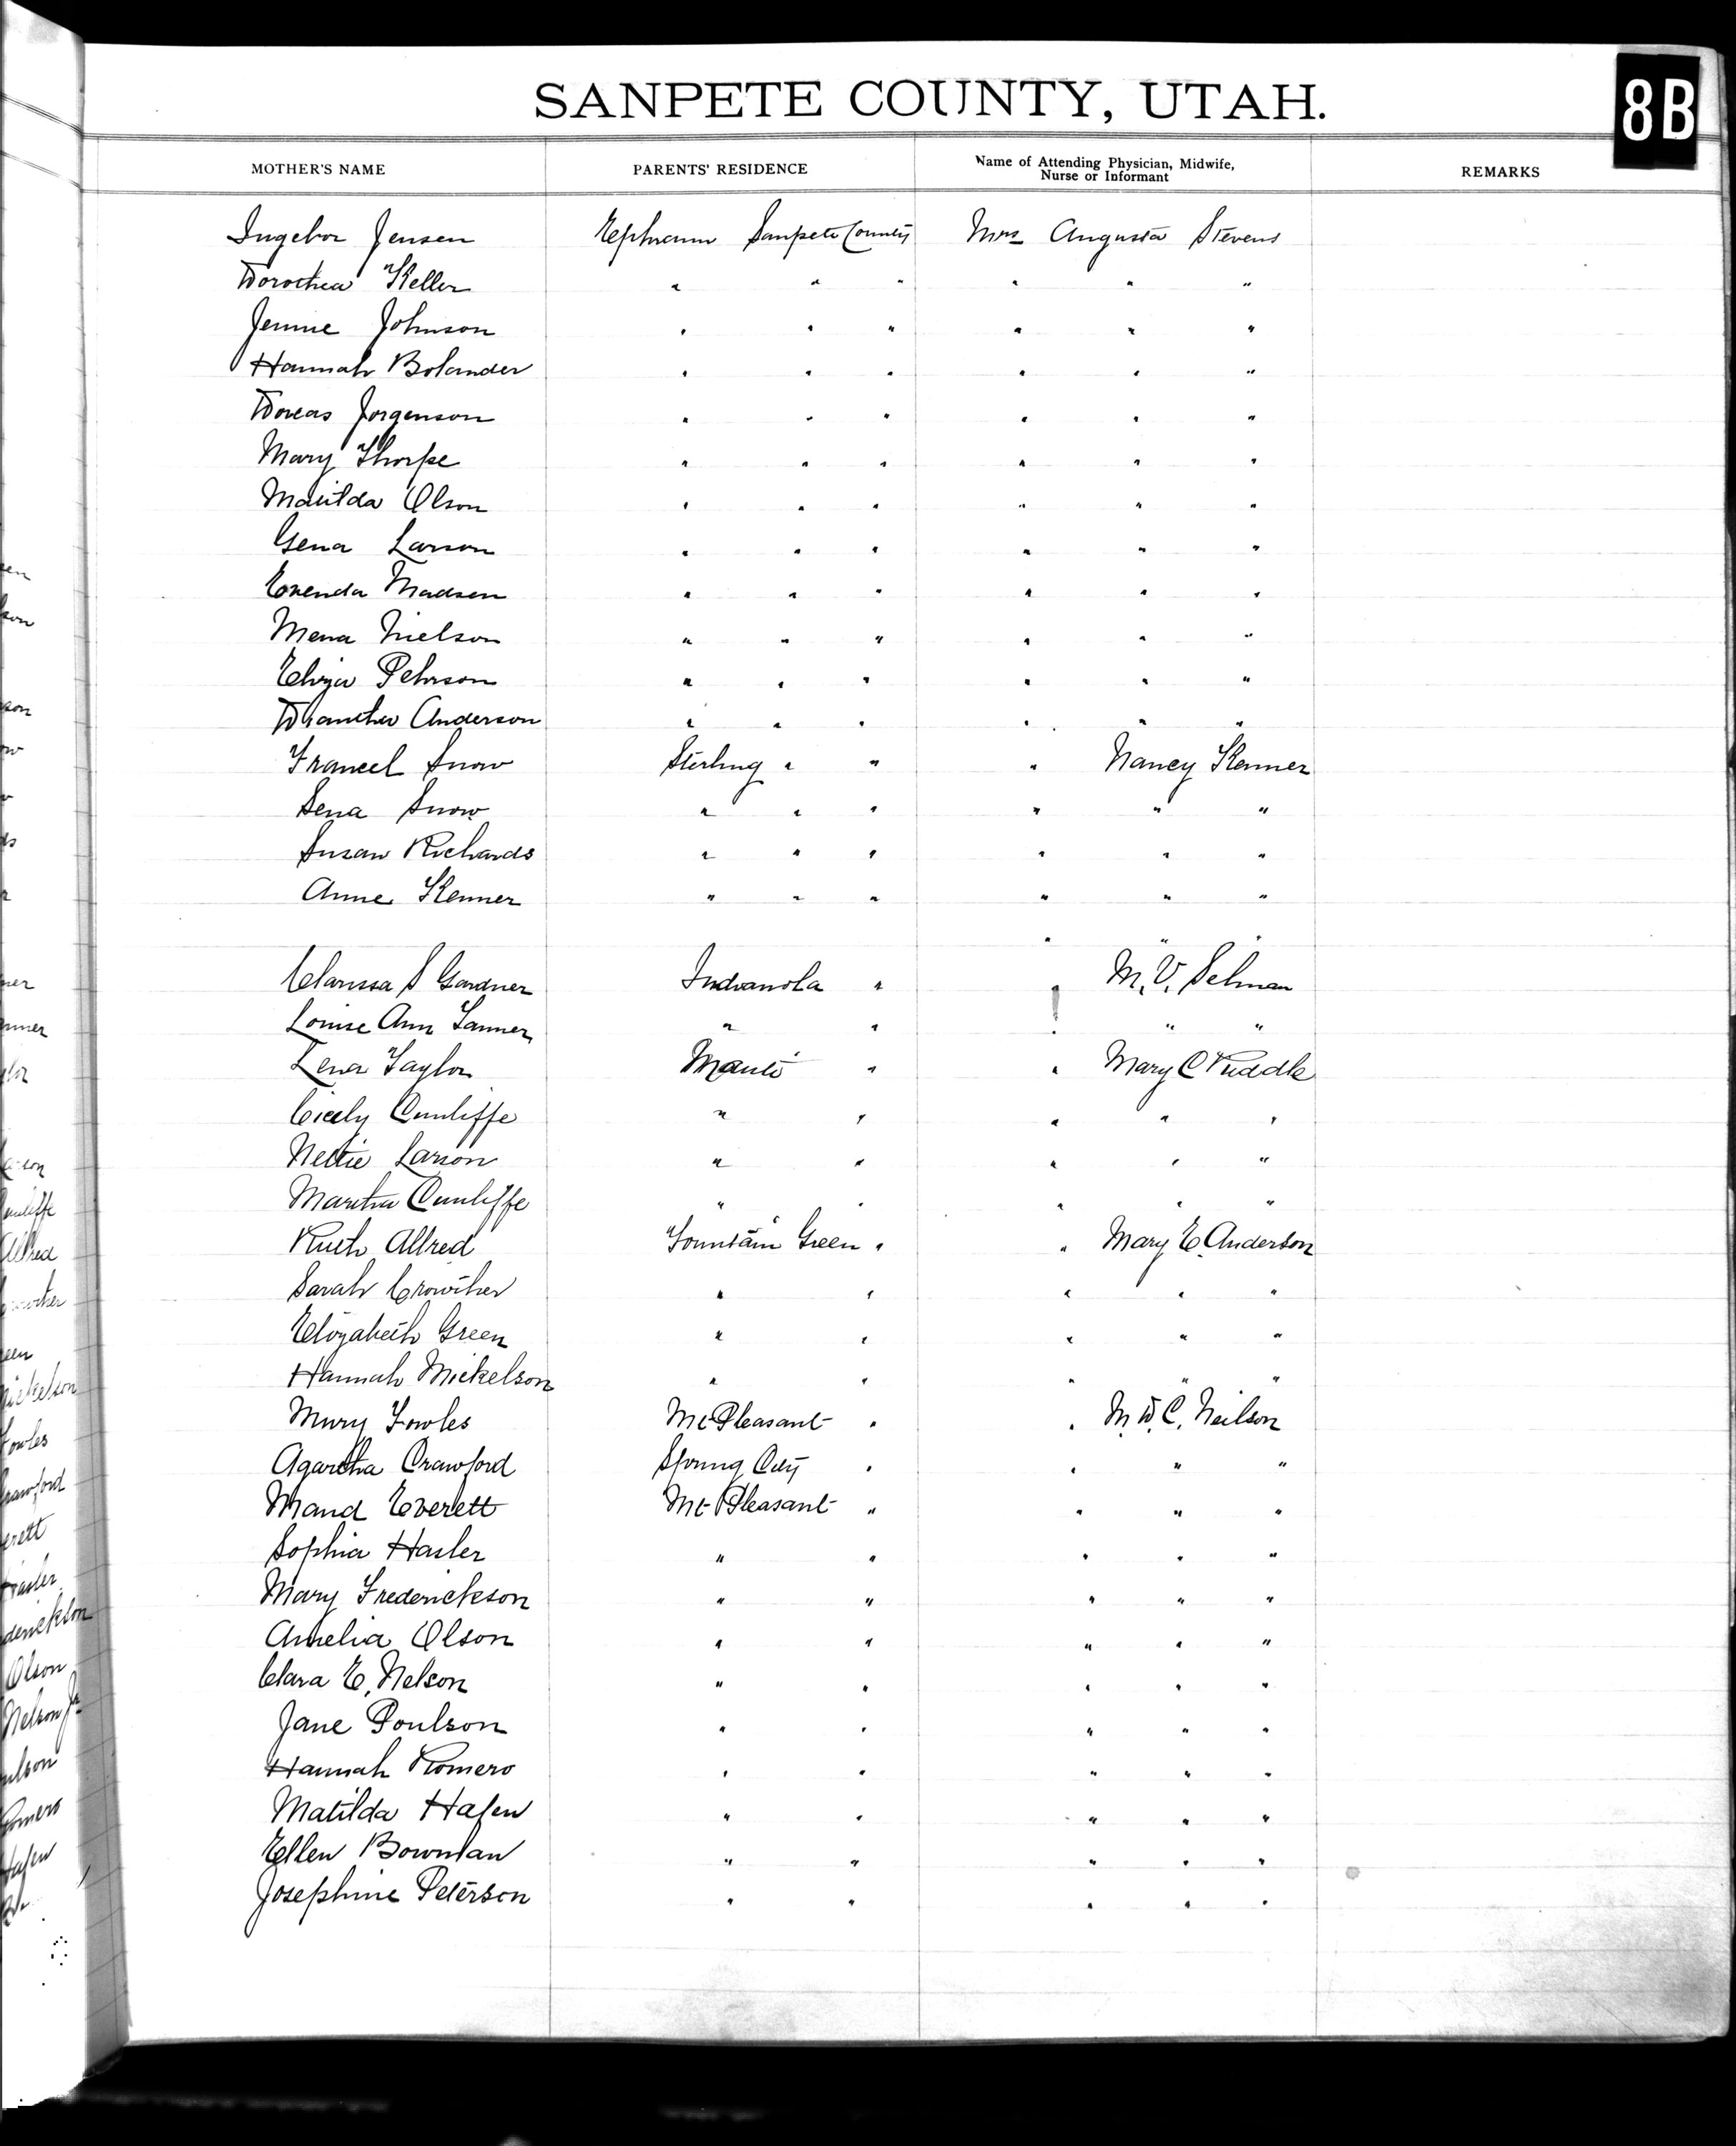 SANPETE COUNTY, UTAH.
8B
MOTHER'S NAME PARENTS' RESIDENCE Name of Attending Physician, Midwife, Nurse or Informant REMARKS
Ingebor Jensen Ephraim Sanpete County Mrs Augusta Stevens
Dorothea Keller " " " " " "
Jennie Johnson " " " " " "
Hannah Bolander " " " " " "
Dorcas Jorgenson " " " " " "
Mary Thorpe " " " " " "
Matilda Olson " " " " " "
Gena Larson " " " " " "
Madsen " " " " " "
Mena Nielson " " " " " "
Eliza Pehrson " " " " " "
Anderson " " " " " "
Francel Snow Sterling " " " Nancy Kenner
Sena Snow " " " " " "
Susan Richards " " " " " "
Anne Kenner " " " " " "
" " "
Clarissa S Gardner Indianola " " M. V. Selman
Louise Ann Tanner " " " " "
Lena Taylor Manti " " Mary C Riddle
Cicely Cunliffe " " " " "
Nettie Larson " " " " "
Martha Cunliffe " " " " "
Ruth Allred Fountain Green " " Mary E. Anderson
Sarah Crowther " " " " "
Elizabeth Green " " " " "
Hannah Mickelson " " " " "
Mary Fowles Mt Pleasant " " M. D. C. Neilson
Agartha Crawford Spring City " " " "
Maud Everett Mt Pleasant " " " "
Sophia Hasler " " " " "
Mary Frederickson " " " " "
Amelia Olson " " " " "
Clara E. Nelson " " " " "
Jane Poulson " " " " "
Hannah Romero " " " " "
Matilda Hafen " " " " "
Ellen Bowman " " " " "
Josephine Peterson " " " " "